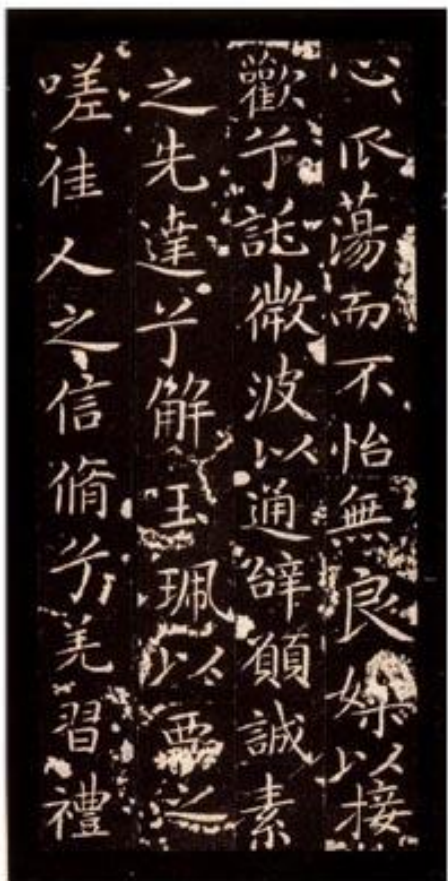 心振蕩而不怡無良媒以接
歡兮託微波以通辭願誠素
之先達兮解玉珮以要之
嗟佳人之信脩兮羌習禮